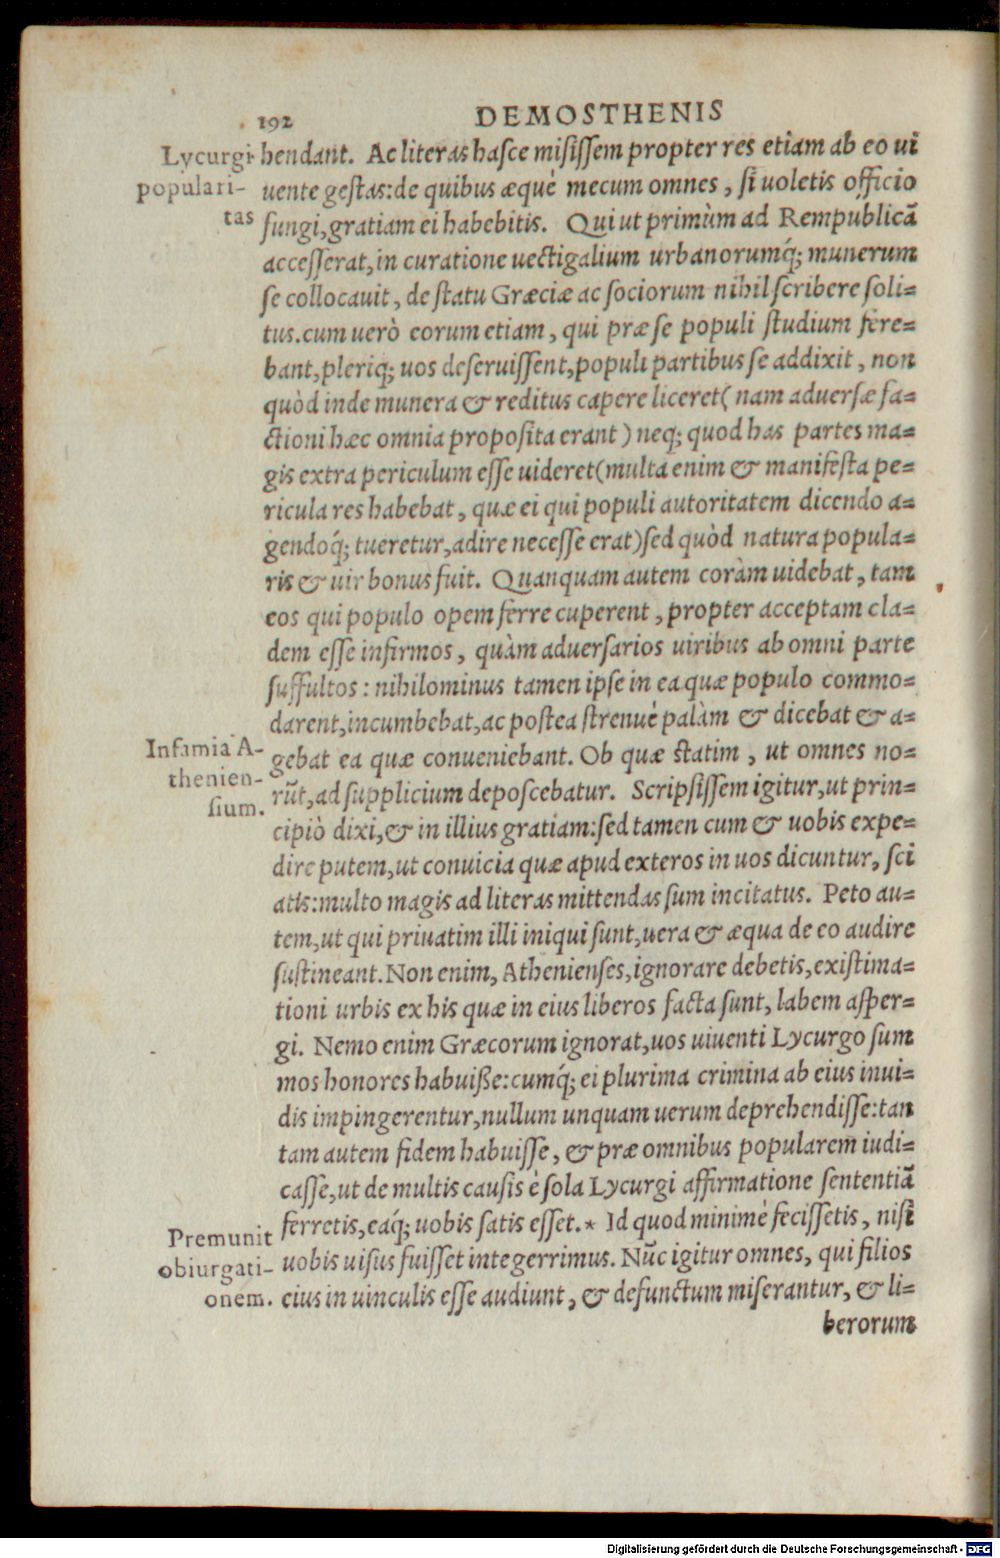 192 DEMOSTHENIS
Lycurgi
populari-
tas
hendant. Ac literas hasce misissem propter res etiam ab eo ui
uente gestas: de quibus æquè mecum omnes, si uoletis officio
fungi, gratiam ei habebitis. Qui ut primùm ad Rempublicã
accesserat, in curatione uectigalium urbanorumq́; munerum
se collocauit, de statu Græciæ ac sociorum nihil scribere soli=
tus. cum uerò eorum etiam, qui præ se populi studium fere=
bant, pleriq; uos deseruissent, populi partibus se addixit, non
quòd inde munera & reditus capere liceret ( nam aduersæ fa=
ctioni hæc omnia proposita erant ) neq; quod has partes ma=
gis extra periculum esse uideret (multa enim & manifesta pe=
ricula res habebat, quæ ei qui populi autoritatem dicendo a=
gendoq́; tueretur, adire necesse erat) sed quòd natura popula=
ris & uir bonus fuit. Quanquam autem coràm uidebat, tam
eos qui populo opem ferre cuperent, propter acceptam cla=
dem esse infirmos, quàm aduersarios uiribus ab omni parte
suffultos: nihilominus tamen ipse in ea quæ populo commo=
darent, incumbebat, ac postea strenuè palàm & dicebat & a=
Infamia A-
thenien-
sium.
gebat ea quæ conueniebant. Ob quæ statim, ut omnes no=
rũt, ad supplicium deposcebatur. Scripsissem igitur, ut prin=
cipiò dixi, & in illius gratiam: sed tamen cum & uobis expe=
dire putem, ut conuicia quæ apud exteros in uos dicuntur, sci
atis: multo magis ad literas mittendas sum incitatus. Peto au=
tem, ut qui priuatim illi iniqui sunt, uera & æqua de eo audire
sustineant. Non enim, Athenienses, ignorare debetis, existima=
tioni urbis ex his quæ in eius liberos facta sunt, labem asper=
gi. Nemo enim Græcorum ignorat, uos uiuenti Lycurgo sum
mos honores habuiße: cumq́; ei plurima crimina ab eius inui=
dis impingerentur, nullum unquam uerum deprehendisse: tan
tam autem fidem habuisse, & præ omnibus popularem iudi=
casse, ut de multis causis è sola Lycurgi affirmatione sententiã
ferretis, eaq́; uobis satis esset. * Id quod minimè fecissetis, nisi
Premunit
obiurgati-
onem.
uobis uisus fuisset integerrimus. Nũc igitur omnes, qui filios
eius in uinculis esse audiunt, & defunctum miserantur, & li=
berorum
Digitalisierung gefördert durch die Deutsche Forschungsgemeinschaft - DFG